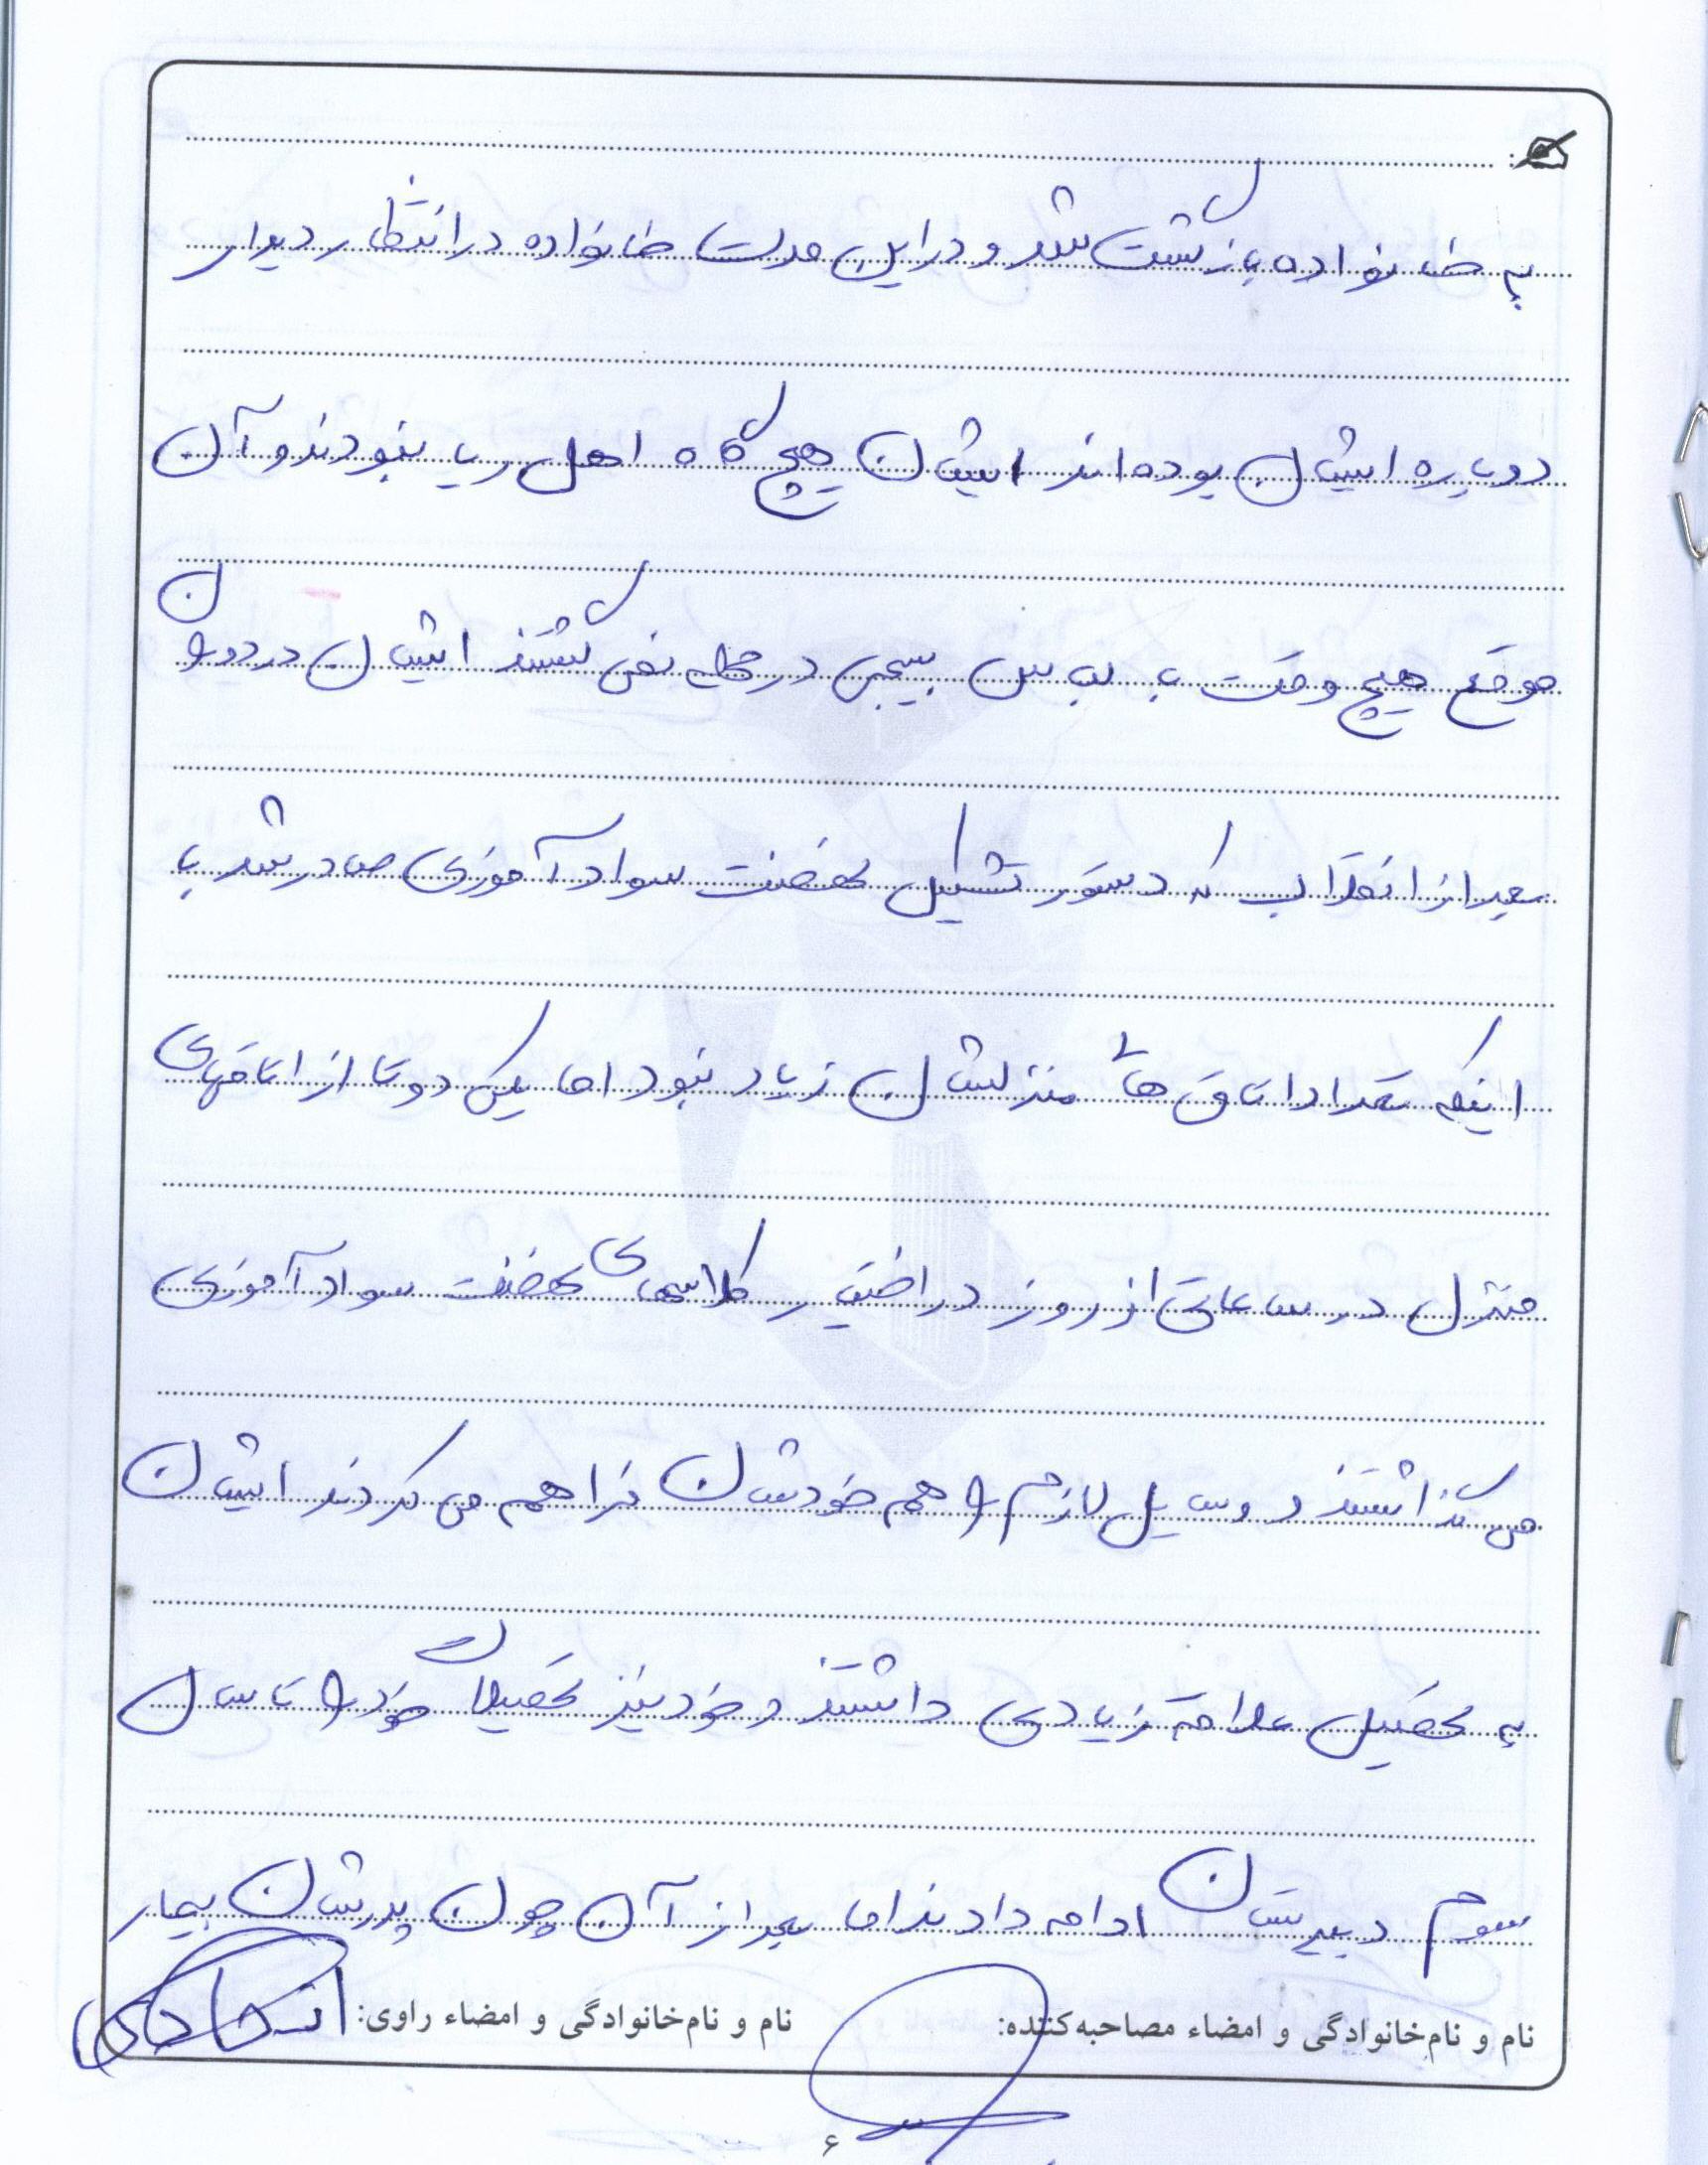 به خانواده بازگشت شد و در این مدت خانواده در انتظار دیدار
دوباره ایشان بوده اند ایشان هیچ گاه اهل ریا نبودند و آن
موقع هیچ وقت با لباس بسیجی در محله نمی گشتند ایشان در دوران
بعد از انقلاب که دستور تشکیل نهضت سواد آموزی صادر شد با
اینکه تعداد اتاق های منزلشان زیاد نبود اما یکی دو تا از اتاقهای
منزل در ساعاتی از روز در اختیار کلاسهای نهضت سواد آموزی
می گذاشتند و وسایل لازم را هم خودشان فراهم می کردند ایشان
به تحصیل علاقه زیادی داشتند و خود نیز تحصیلات خود را تا سال
سوم دبیرستان ادامه دادند اما بعد از آن چون پدرشان بیمار
نام و نام‌خانوادگی و امضاء مصاحبه‌کننده: نام و نام‌خانوادگی و امضاء راوی:
۶